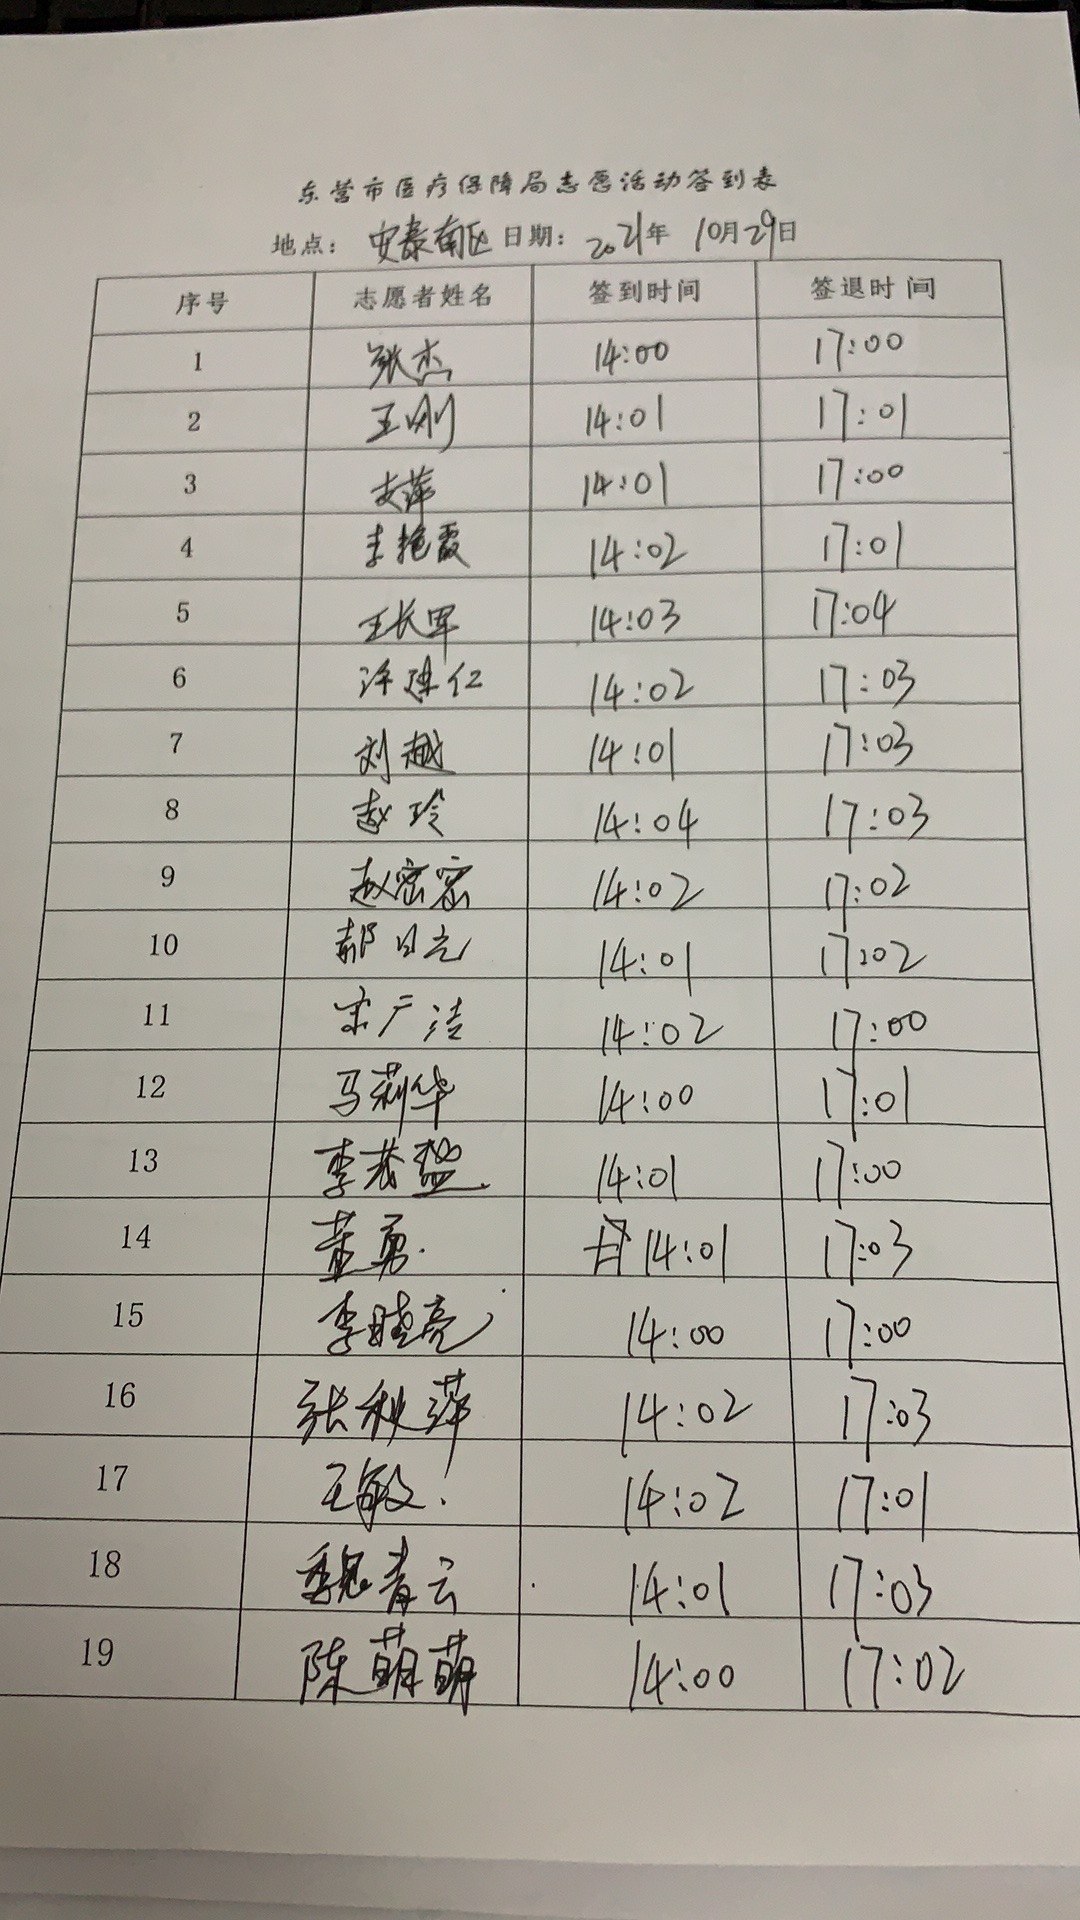 东营市医疗保障局志愿活动签到表
地点：安泰南区 日期：2021年 10月29日
序号 志愿者姓名 签到时间 签退时间
1 张杰 14:00 17:00
2 王刚 14:01 17:01
3 支萍 14:01 17:00
4 李艳霞 14:02 17:01
5 王长军 14:03 17:04
6 许建仁 14:02 17:03
7 刘越 14:01 17:03
8 赵玲 14:04 17:03
9 赵密密 14:02 17:02
10 14:01 17:02
11 宋广洁 14:02 17:00
12 马莉华 14:00 17:01
13 14:01 17:00
14 董勇 14:01 17:03
15 李晓亮 14:00 17:00
16 张秋萍 14:02 17:03
17 王敏 14:02 17:01
18 魏青云 14:01 17:03
19 陈萌萌 14:00 17:02